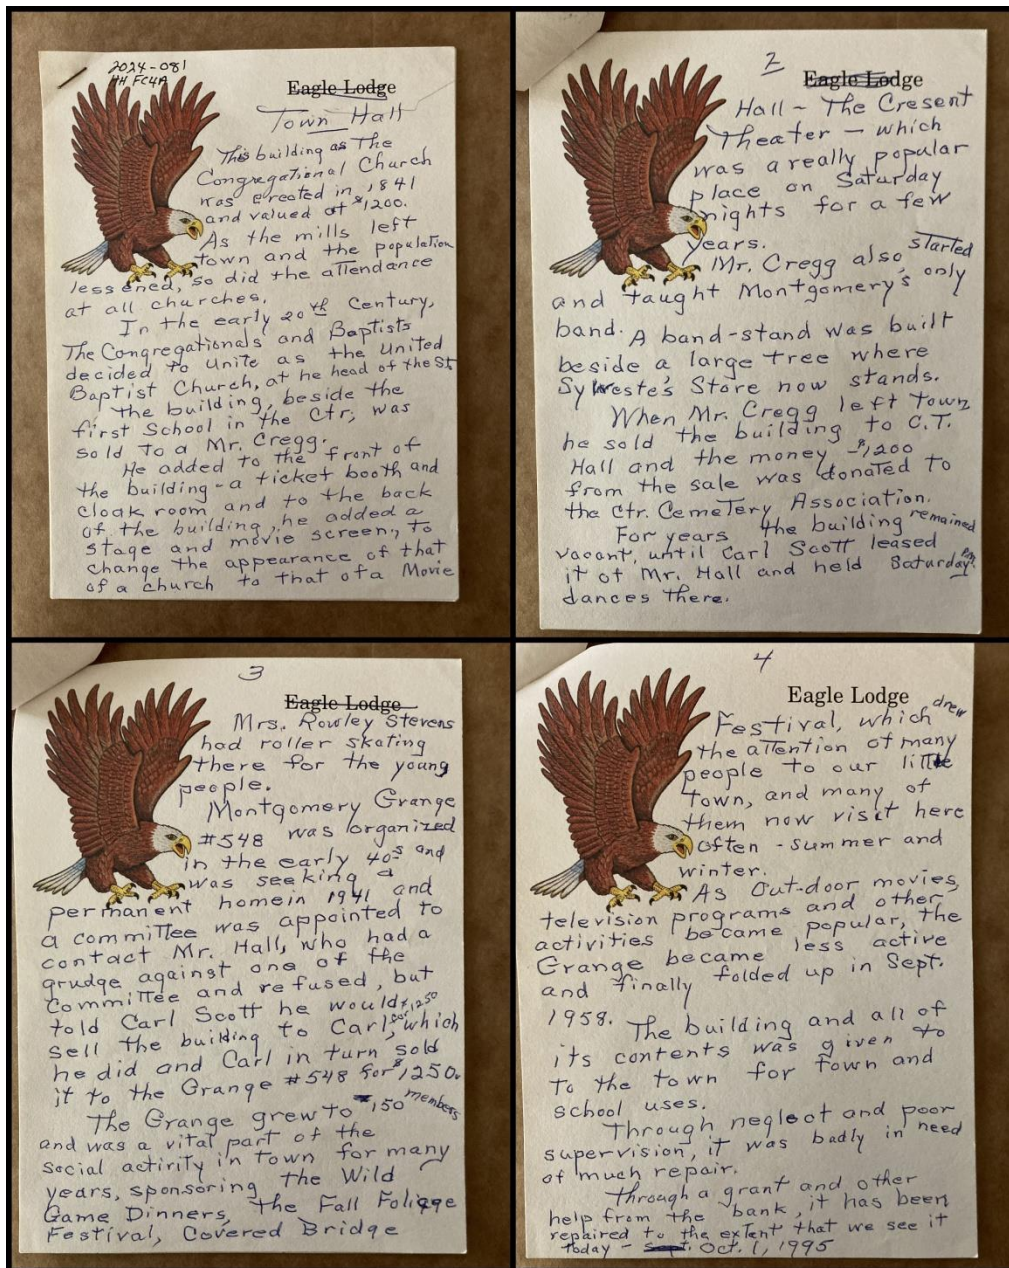 2024-081
HH FC4A
Eagle Lodge
Town Hall
This building as The
Congregational Church
was erected in 1841
and valued at $1200.
As the mills left
town and the population
lessened, so did the attendance
at all churches.
In the early 20th Century,
The Congregationals and Baptists
decided to Unite as the United
Baptist Church, at he head of the St
The building, beside the
first School in the Ctr, was
sold to a Mr. Cregg.
He added to the front of
the building - a ticket booth and
cloak room and to the back
of the building, he added a
stage and movie screen, to
change the appearance of that
of a church to that of a Movie
2
Eagle Lodge
Hall - The Cresent
Theater - which
was a really popular
place on Saturday
nights for a few
years.
Mr. Cregg also started
and taught Montgomery's only
band. A band-stand was built
beside a large tree where
Sylveste's Store now stands.
When Mr. Cregg left town
he sold the building to C.T.
Hall and the money - $1,200
from the sale was donated to
the Ctr. Cemetery Association.
For years the building remained
vacant, until Carl Scott leased
it of Mr. Hall and held Saturday P.M.
dances there.
3
Eagle Lodge
Mrs. Rowley Stevens
had roller skating
there for the young
people.
Montgomery Grange
#548 was organized
in the early 40s and
was seeking a
permanent home in 1941 and
a committee was appointed to
contact Mr. Hall, who had a
grudge against one of the
Committee and refused, but
told Carl Scott he would
sell the building to Carl, for $1,250 which
he did and Carl in turn sold
it to the Grange #548 for $1,250.
The Grange grew to 150 members
and was a vital part of the
social activity in town for many
years, sponsoring the Wild
Game Dinners, the Fall Foliage
Festival, Covered Bridge
4
Eagle Lodge
Festival, which drew
the attention of many
people to our little
town, and many of
them now visit here
often - summer and
winter.
As Out-door movies,
television programs and other
activities became popular, the
Grange became less active
and finally folded up in Sept.
1958.
The building and all of
its contents was given to
to the town for town and
school uses.
Through neglect and poor
supervision, it was badly in need
of much repair.
Through a grant and other
help from the bank, it has been
repaired to the extent that we see it
today - Sept. Oct. 1, 1995